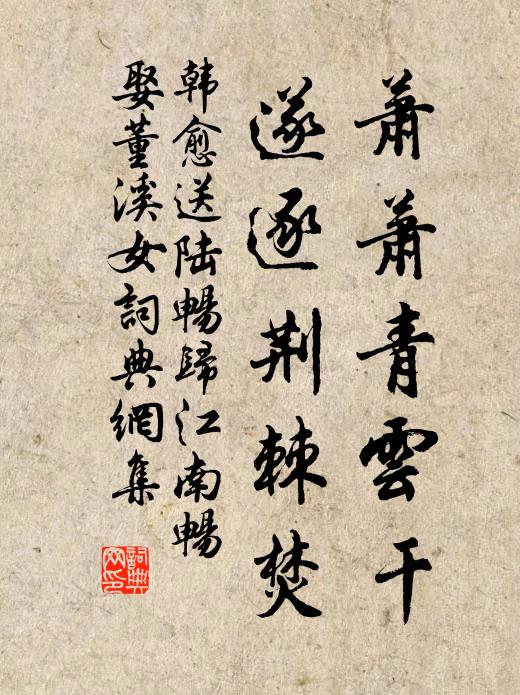 蕭蕭青雲干
遂逐荆棘焚
韩愈送陆暢歸江南暢
娶董溪女詞典網集
詞典网印